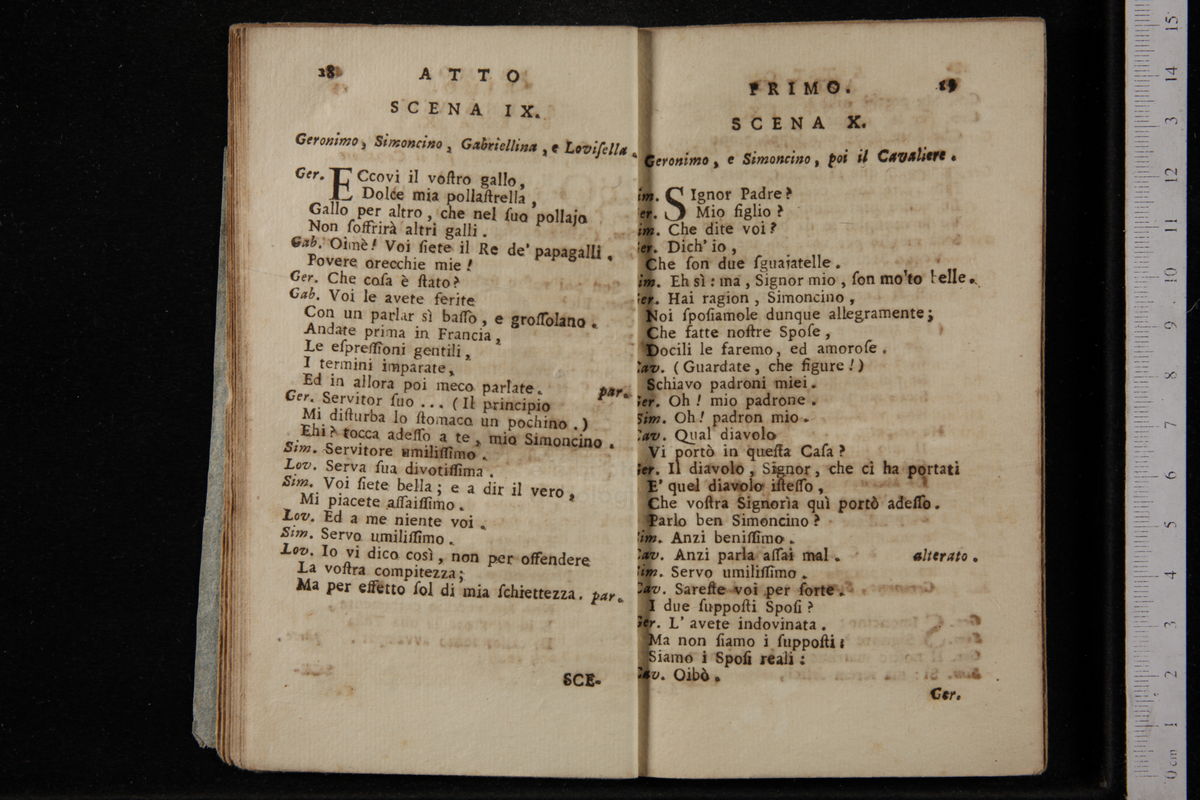 28 ATTO
SCENA IX.
Geronimo, Simoncino, Gabriellina, e Loviſella.
Ger. ECcovi il voſtro gallo,
Dolce mia pollaſtrella,
Gallo per altro, che nel ſuo pollajo
Non ſoffrirà altri galli.
Gab. Oimè! Voi ſiete il Re de' papagalli.
Povere orecchie mie!
Ger. Che coſa è ſtato?
Gab. Voi le avete ferite
Con un parlar sì baſſo, e groſſolano.
Andate prima in Francia,
Le eſpreſſioni gentili,
I termini imparate,
Ed in allora poi meco parlate. par.
Ger. Servitor ſuo ... (Il principio
Mi diſturba lo ſtomaco un pochino.)
Ehi? tocca adeſſo a te, mio Simoncino.
Sim. Servitore umiliſſimo.
Lov. Serva ſua divotiſſima.
Sim. Voi ſiete bella; e a dir il vero,
Mi piacete aſſaiſſimo.
Lov. Ed a me niente voi.
Sim. Servo umiliſſimo.
Lov. Io vi dico così, non per offendere
La voſtra compitezza;
Ma per effetto ſol di mia ſchiettezza. par.
SCE-
PRIMO. 29
SCENA X.
Geronimo, e Simoncino, poi il Cavaliere.
im. SIgnor Padre?
er. Mio figlio?
im. Che dite voi?
er. Dich' io,
Che ſon due ſguajatelle.
im. Eh sì: ma, Signor mio, ſon molto belle.
er. Hai ragion, Simoncino,
Noi ſpoſiamole dunque allegramente;
Che fatte noſtre Spoſe,
Docili le faremo, ed amoroſe.
Cav. (Guardate, che figure!)
Schiavo padroni miei.
Ger. Oh! mio padrone.
Sim. Oh! padron mio.
Cav. Qual diavolo
Vi portò in queſta Caſa?
Ger. Il diavolo, Signor, che ci ha portati
E' quel diavolo iſteſſo,
Che voſtra Signorìa quì portò adeſſo.
Parlo ben Simoncino?
Sim. Anzi beniſſimo.
Cav. Anzi parla aſſai mal. alterato.
Sim. Servo umiliſſimo.
Cav. Sareſte voi per ſorte.
I due ſuppoſti Spoſi?
Ger. L' avete indovinata.
Ma non ſiamo i ſuppoſti:
Siamo i Spoſi reali:
Cav. Oibò.
Ger.